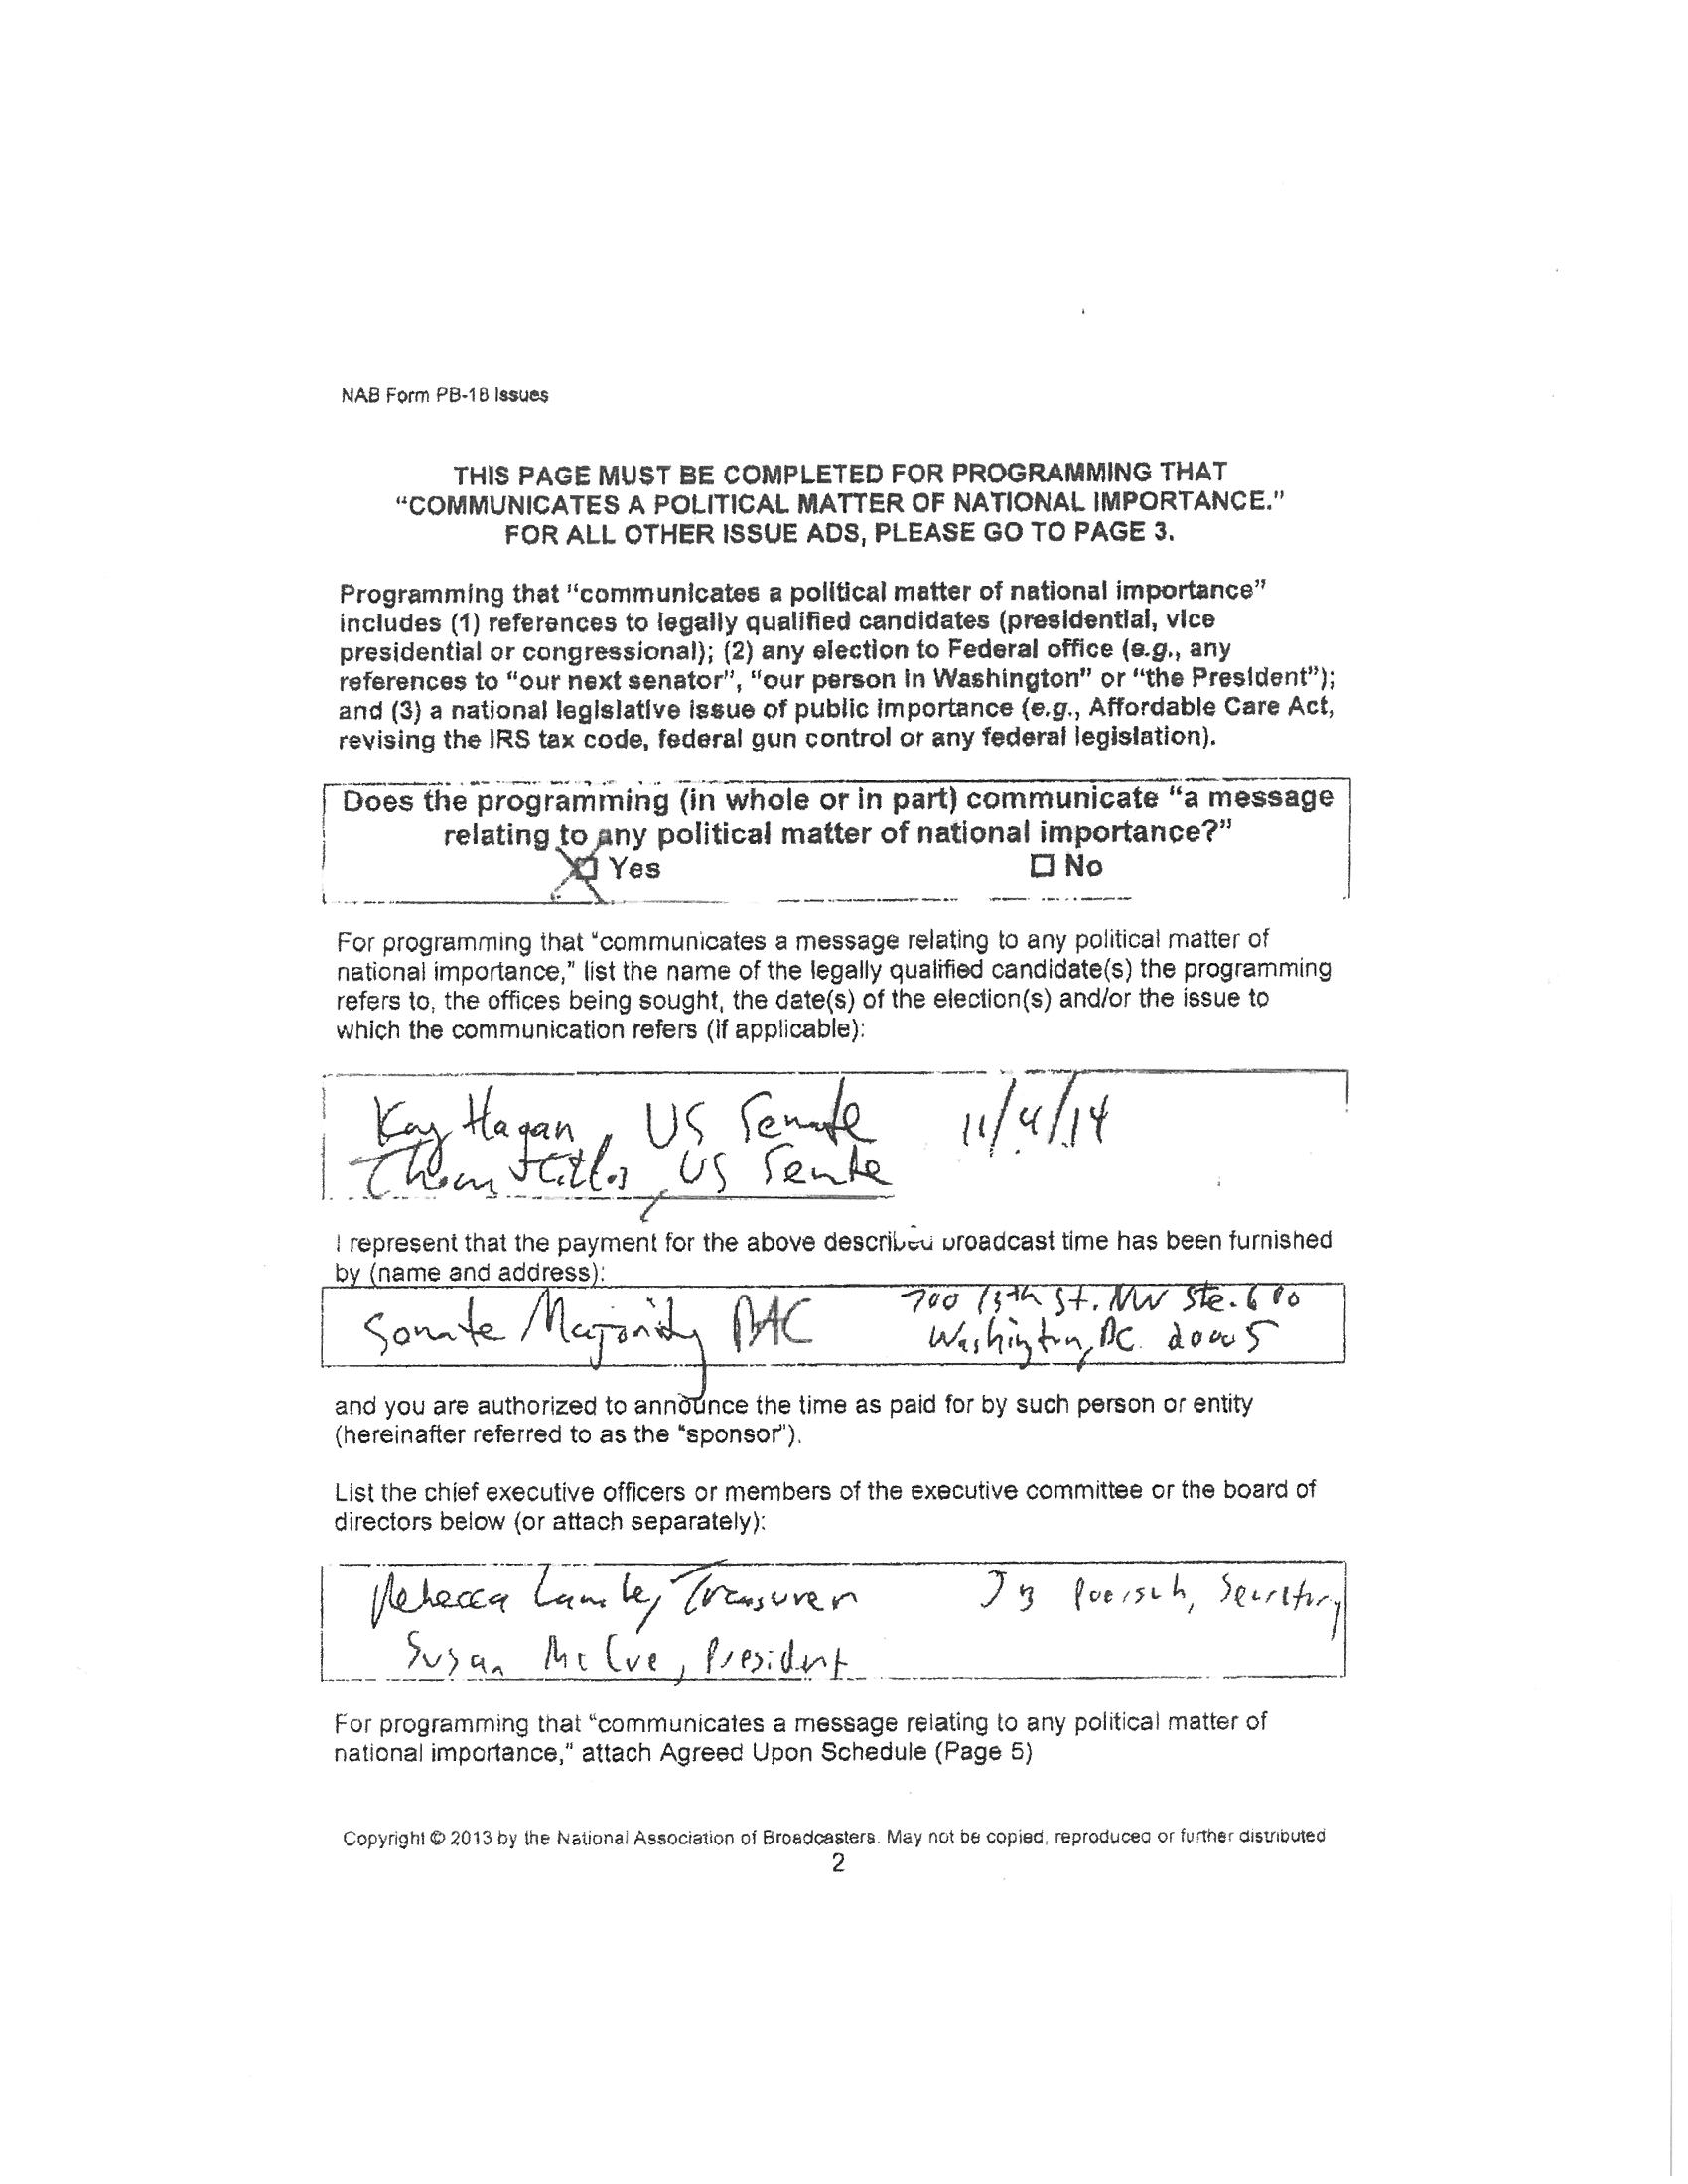 NAB Form PB-18 Issues
THIS PAGE MUST BE COMPLETED FOR PROGRAMMING THAT
“COMMUNICATES A POLITICAL MATTER OF NATIONAL IMPORTANCE.”
FOR ALL OTHER ISSUE ADS, PLEASE GO TO PAGE 3.
Programming that “communicates a political matter of national importance”
includes (1) references to legally qualified candidates (presidential, vice
presidential or congressional); (2) any election to Federal office (e.g., any
references to “our next senator”, “our person in Washington” or “the President”);
and (3) a national legislative issue of public importance (e.g., Affordable Care Act,
revising the IRS tax code, federal gun control or any federal legislation).
Does the programming (in whole or in part) communicate “a message
relating to any political matter of national importance?”
☒ Yes ☐ No
For programming that “communicates a message relating to any political matter of
national importance,” list the name of the legally qualified candidate(s) the programming
refers to, the offices being sought, the date(s) of the election(s) and/or the issue to
which the communication refers (if applicable):
Kay Hagan, US Senate 11/4/14
Thom Tillis, US Senate
I represent that the payment for the above described broadcast time has been furnished
by (name and address):
Senate Majority PAC 700 13th St. NW Ste. 600
Washington, DC 20005
and you are authorized to announce the time as paid for by such person or entity
(hereinafter referred to as the “sponsor”).
List the chief executive officers or members of the executive committee or the board of
directors below (or attach separately):
Rebecca Lambe, Treasurer JB Poersch, Secretary
Susan McCue, President
For programming that “communicates a message relating to any political matter of
national importance,” attach Agreed Upon Schedule (Page 5)
Copyright © 2013 by the National Association of Broadcasters. May not be copied, reproduced or further distributed
2